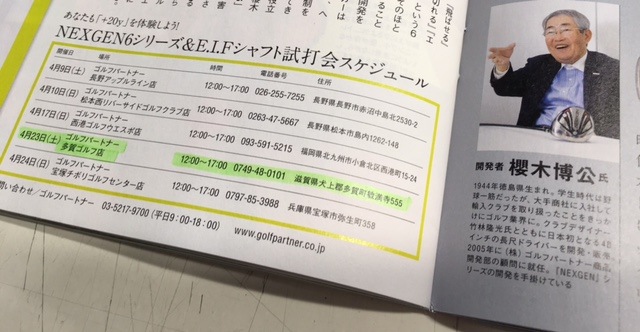 「飛ばせる」
あなたも「+20y」を体験しよう!
NEXGEN6シリーズ&E.I.Fシャフト試打会スケジュール
開催日 場所 時間 電話番号 住所
4月9日(土) ゴルフパートナー 長野アップルライン店 12:00〜17:00 026-255-7255 長野県長野市赤沼中島北2530-2
4月10日(日) ゴルフパートナー 松本西リバーサイドゴルフクラブ店 12:00〜17:00 0263-47-5667 長野県松本市島内1262-148
4月17日(日) ゴルフパートナー 西港ゴルフウエスポ店 12:00〜17:00 093-591-5215 福岡県北九州市小倉北区西港町15-24
4月23日(土) ゴルフパートナー 多賀ゴルフ店 12:00〜17:00 0749-48-0101 滋賀県犬上郡多賀町敏満寺555
4月24日(日) ゴルフパートナー 宝塚チボリゴルフセンター店 12:00〜17:00 0797-85-3988 兵庫県宝塚市弥生町358
問い合わせ/ゴルフパートナー 03-5217-9700(平日9:00-18:00)
www.golfpartner.co.jp
開発者 櫻木博公氏
1944年徳島県生まれ。学生時代は野
球一筋だったが、大手商社に入社して
輸入クラブを取り扱ったことをきっか
けにゴルフ業界に。クラブデザイナー
竹林隆光氏とともに日本初となる48
インチの長尺ドライバーを開発・販売。
2005年に(株)ゴルフパートナー商品
開発部の顧問に就任。『NEXGEN』シ
リーズの開発を手掛けている